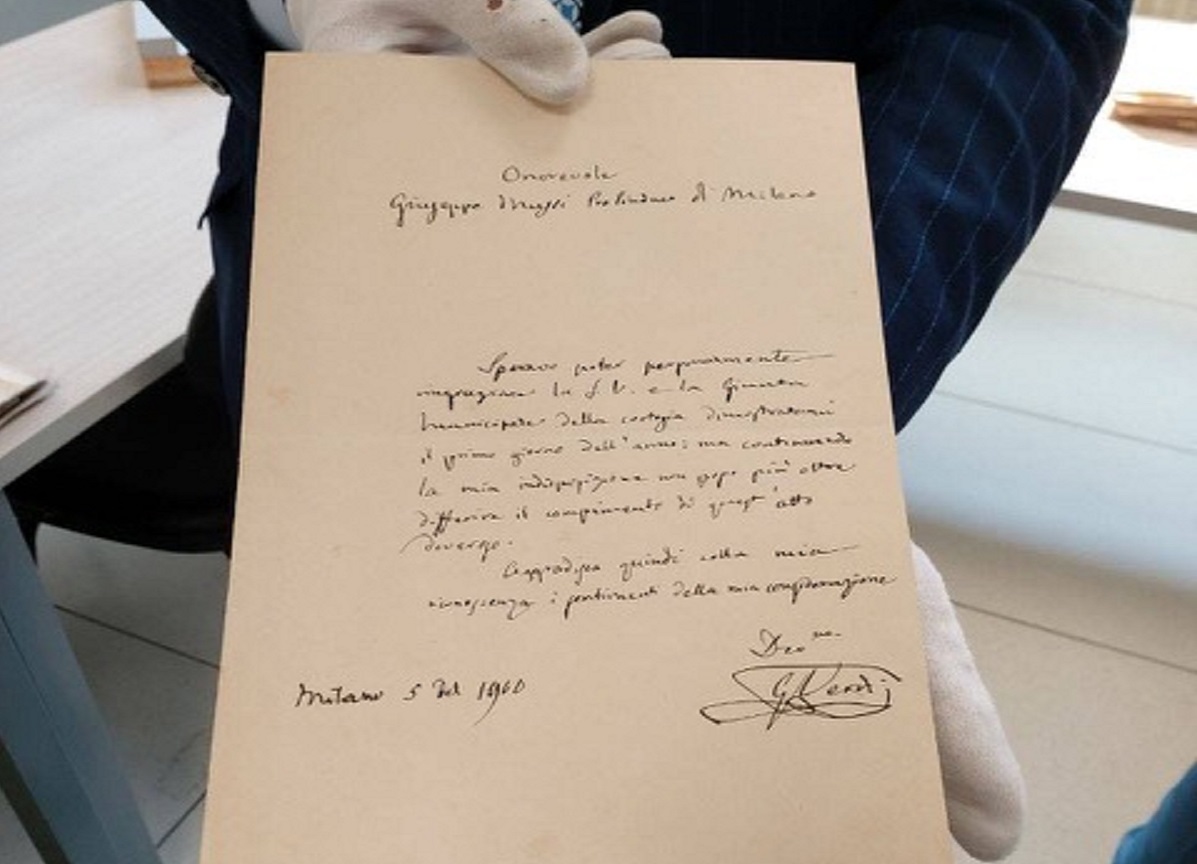 Onorevole
Giuseppe Mussi Prosindaco di Milano
Speravo poter personalmente
ringraziare la S. V. e la Giunta
Municipale della cortesia dimostratami
il primo giorno dell'anno: ma continuando
la mia indisposizione non posso più oltre
differire il compimento di quest'atto
doveroso.
Aggradisca quindi colla mia
riconoscenza i sentimenti della mia considerazione
Dev mo
Milano 5 Del 1900
G Verdi